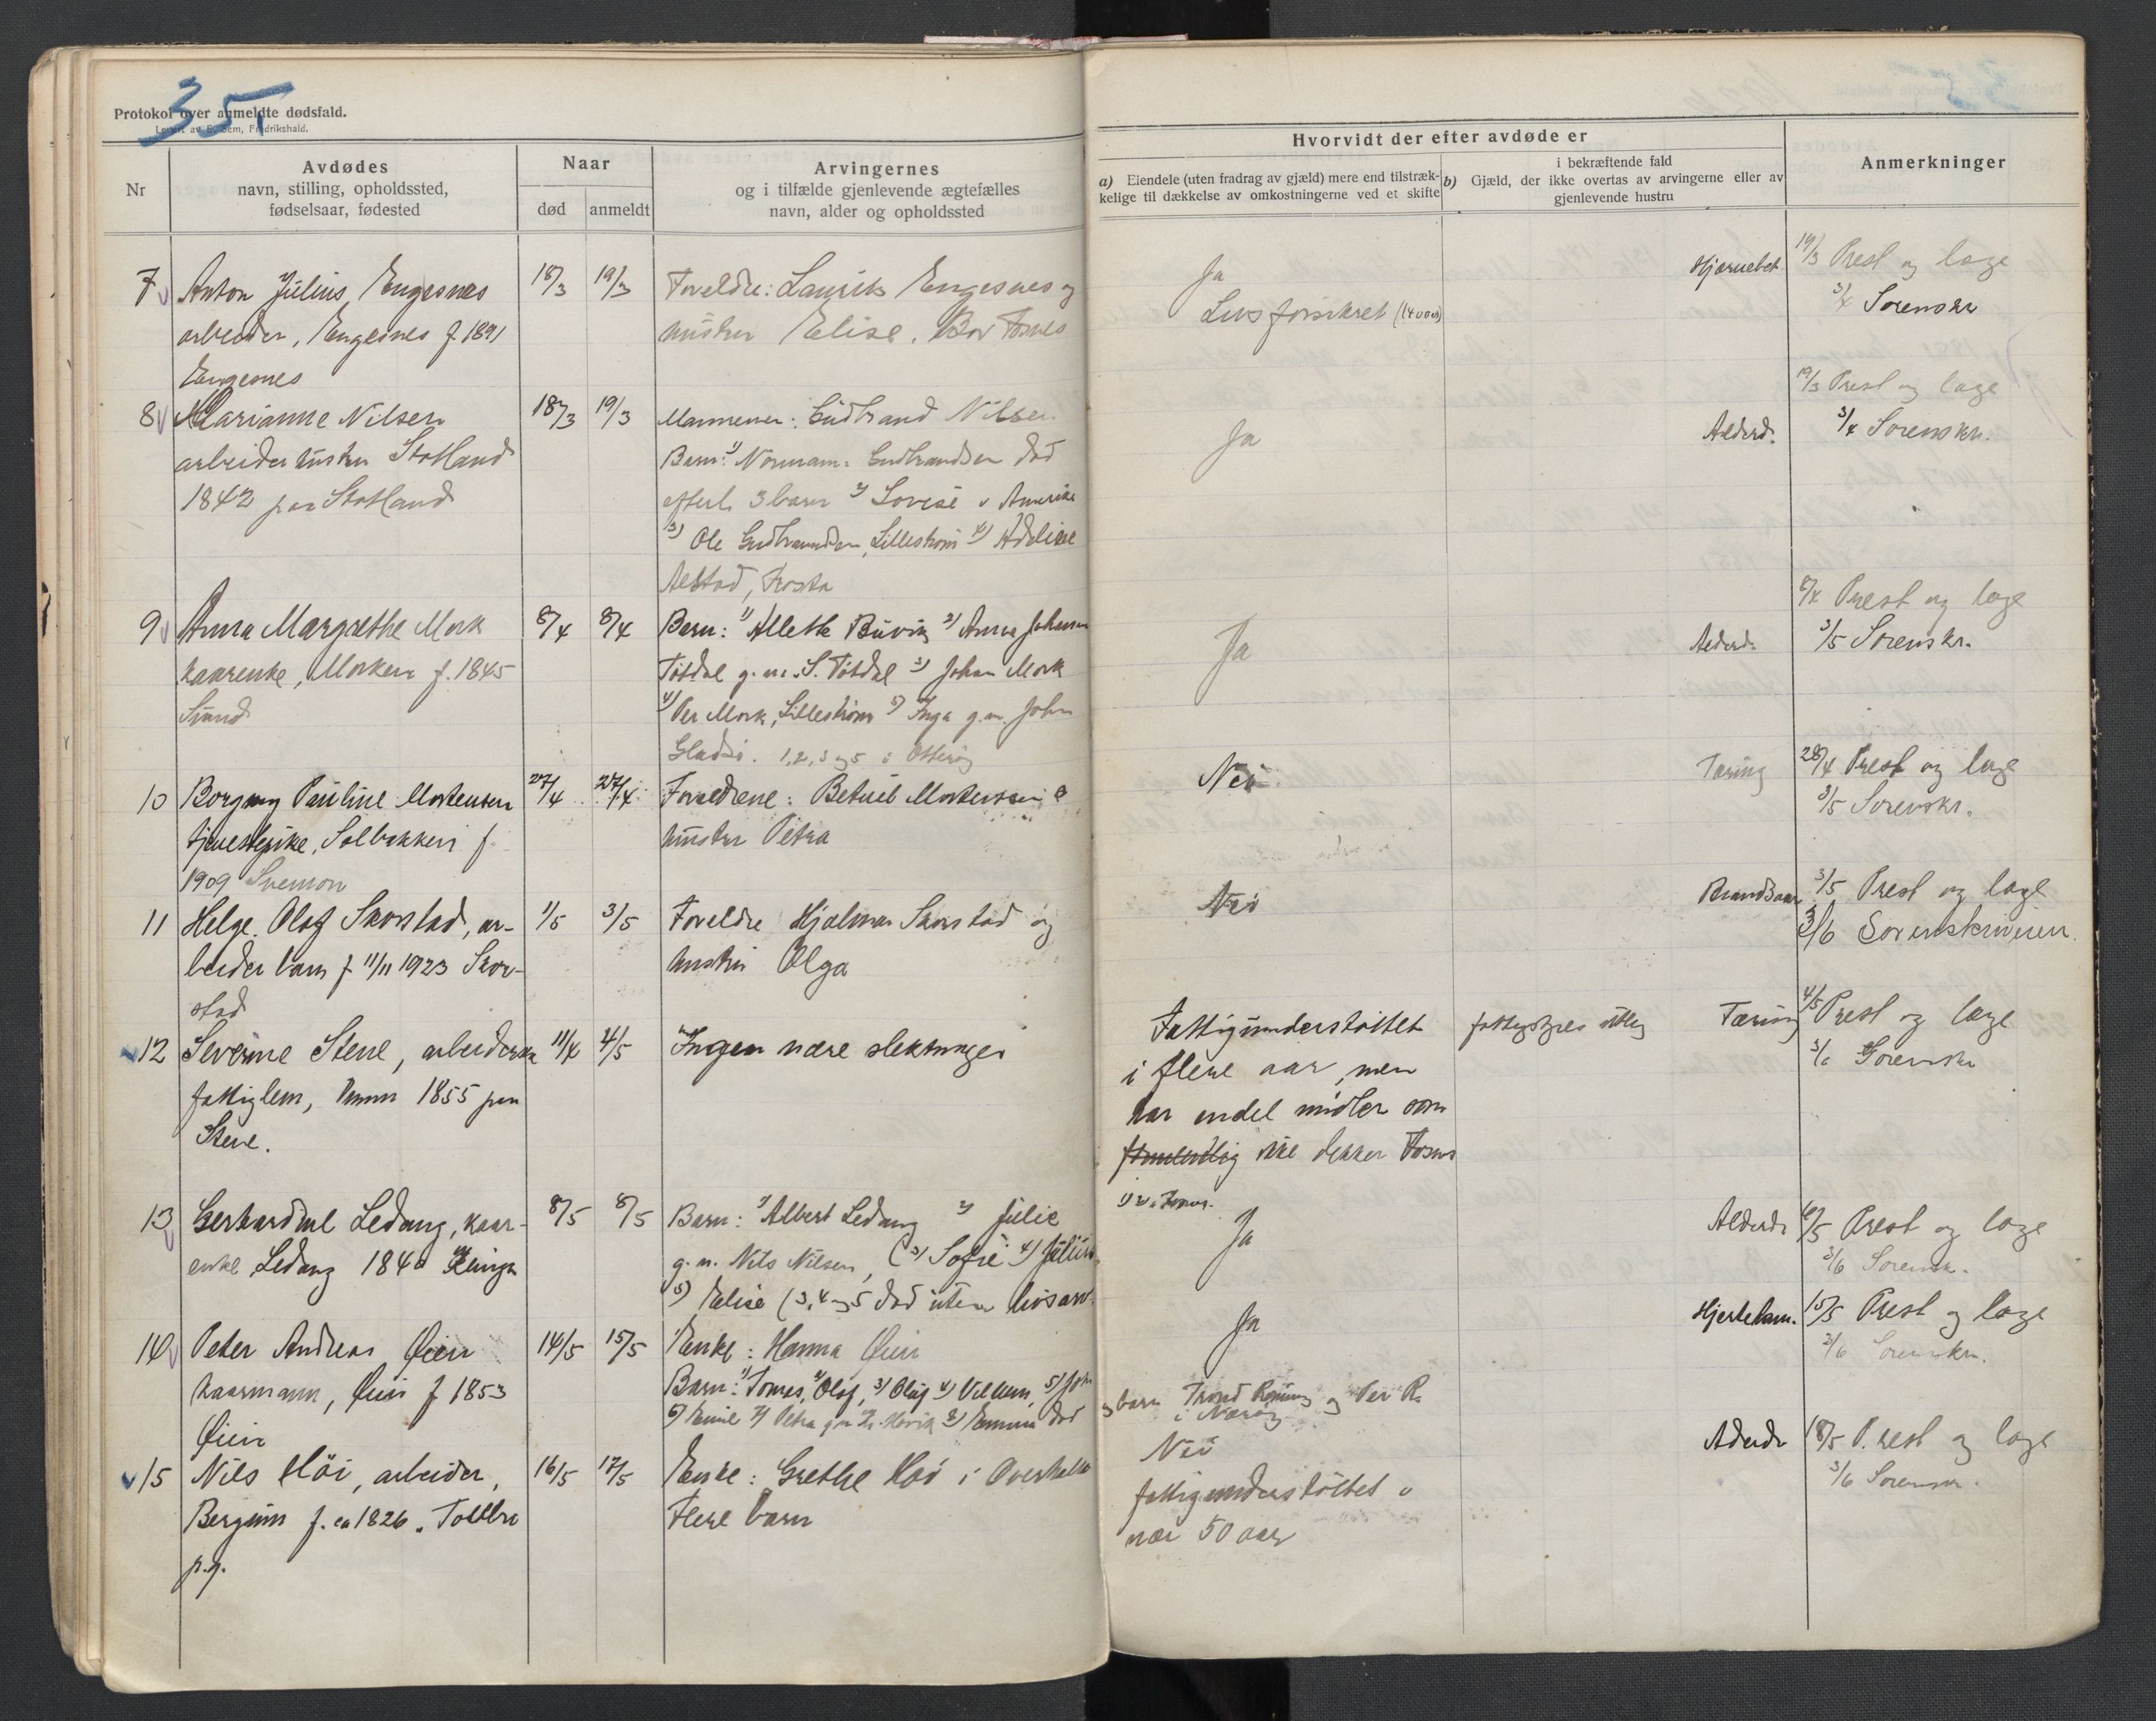 35.
Protokol over anmeldte dødsfald.
Levert av E. Sem, Fredrikshald.
Nr
Avdødes
navn, stilling, opholdssted,
fødselsaar, fødested
Naar
død
anmeldt
Arvingernes
og i tilfælde gjenlevende ægtefælles
navn, alder og opholdssted
Hvorvidt der efter avdøde er
a) Eiendele (uten fradrag av gjæld) mere end tilstræk-
kelige til dækkelse av omkostningerne ved et skifte
i bekræftende fald
b) Gjæld, der ikke overtas av arvingerne eller av
gjenlevende hustru
Anmerkninger
7 Anton Julius Engesnes 18/3 19/3 Foreldre: Laurits Engesnes og
arbeider, Engesnes f 1891 hustru Elise. Bor Fosnes
Engesnes
Ja
Livsforsikret
19/3 Prest og læge
3/4 Sorenskr
8 Marianne Nilsen 18/3 19/3 Mannen: Gudbrand Nilsen
arbeiderhustru Statland Barn: 1) Gudbrandsen død
1842 paa Statland efterl. 3 barn 2) Lovise i Amerika
3) Ole Gudbrandsen, Lillestrøm 4) Adeline
Frosta
Ja Alderd. 19/3 Prest og læge
3/4 Sorenskr.
9 Anna Margrethe Mork 8/4 8/4 Barn: 1) Alette Buvik 2) Anna Johanna
kaarenke, Morken f. 1845 Tøtdal g. m. S. Tøtdal 3) Johan Mork
Sund 4) Per Mork, Lillestrøm 5) Inga g.m. John
1, 2, 3 og 5 i Otterøy
Ja Alderd. 8/4 Prest og læge
3/5 Sorenskr.
10 Borgny Pauline Mortensen 27/4 27/4 Foreldrene: Betuel Mortensen o
tjenestepike, Solbakken f. hustru Petra
1909
Nei Tæring 28/4 Prest og læge
3/5 Sorenskr.
11 Helge Olaf Skorstad, ar- 1/5 3/5 Foreldre Hjalmar Skorstad og
beider barn f 11/11 1923 Skor- hustru Olga
stad
Nei Brandsaar 3/5 Prest og læge
3/6 Sorenskriveren.
12 Severine Stene, arbeiderske 11/4 4/5 Ingen nære slektninger
fattiglem, 1855 paa
Stene.
Fattigunderstøttet Tæring 4/5 Prest og læge
i flere aar, men 3/6 Sorenskr
har endel midler som
ikke dekker
13 Gerhardine Ledang, kaar- 8/5 8/5 Barn: 1) Albert Ledang 2) Julie
enke Ledang 1840 g. m. Nils Nilsen, (3) Sofie 4) Julius
5) Elise (3, 4 og 5 død uten livsarv.
1) 2) i Fosnes.
Ja Alderd. Prest og læge
3/6 Sorenskr.
14 Peter Andreas Øien 14/5 15/5 Enke: Hanna Øien
kaarmann, Øien f 1853 Barn: 1) Tomas, 2) Olaf, 3) Oluf 4) Vilhelm, 5) John
Øien 6) Emil 7) Petra 8) Emma død
Ja Hjertelam. 15/5 Prest og læge
3/6 Sorenskr.
og Per R.
i Nærøy
15 Nils Høi, arbeider, 16/5 17/5 Enke: Grethe Høi i Overhalla
Bergum f. ca 1826. Flere barn
p.g.
Nei 18/5 Prest og læge
fattigunderstøttet i 3/6 Sorenskr.
nær 50 aar